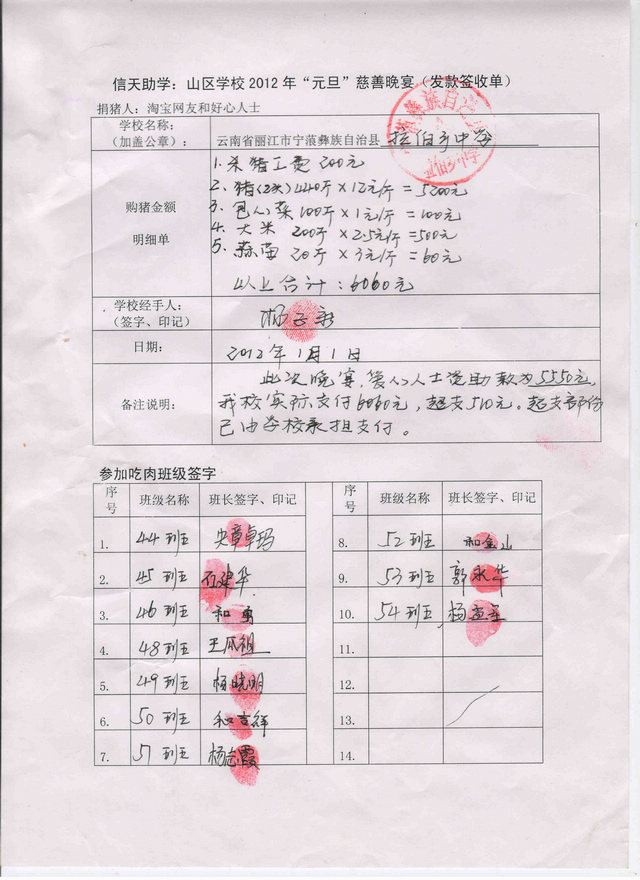 信天助学：山区学校2012年“元旦”慈善晚宴（发款签收单）
捐猪人：淘宝网友和好心人士
学校名称：
（加盖公章）：
云南省丽江市宁蒗彝族自治县 拉伯乡中学
购猪金额
明细单
1. 杀猪工费 200元
2. 猪(2头) 440斤×12元/斤=5200元
3. 包心菜 100斤×1元/斤=100元
4. 大米 200斤×2.5元/斤=500元
5. 蒜苗 20斤×3元/斤=60元
以上合计：6060元
学校经手人：
（签字、印记）
日期：
2012年1月1日
备注说明：
此次晚宴，爱心人士资助款为5550元，
我校实际支付6060元，超支510元。超支部份
已由学校承担支付。
参加吃肉班级签字
序号 班级名称 班长签字、印记 序号 班级名称 班长签字、印记
1. 44班 央章卓玛 8. 52班 和金山
2. 45班 石建华 9. 53班 郭永华
3. 46班 和勇 10. 54班 杨
4. 48班 王 祖 11.
5. 49班 杨晓明 12.
6. 50班 和吉祥 13.
7. 51班 杨志霞 14.